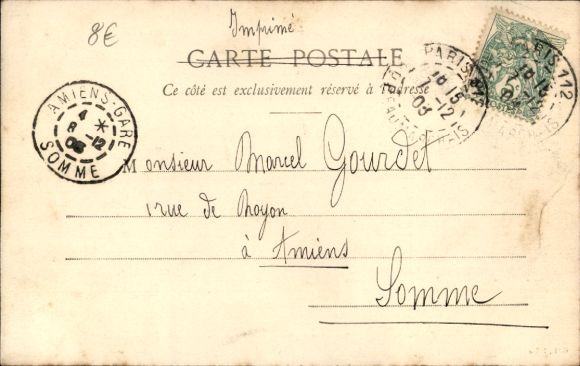 8€
Imprimé
CARTE POSTALE
Ce côté est exclusivement réservé à l'adresse
AMIENS-GARE
8 12
03
SOMME
PARIS 112
15
7 12
03
Monsieur Marcel Gourdet
1 rue de Noyon
à Amiens
Somme